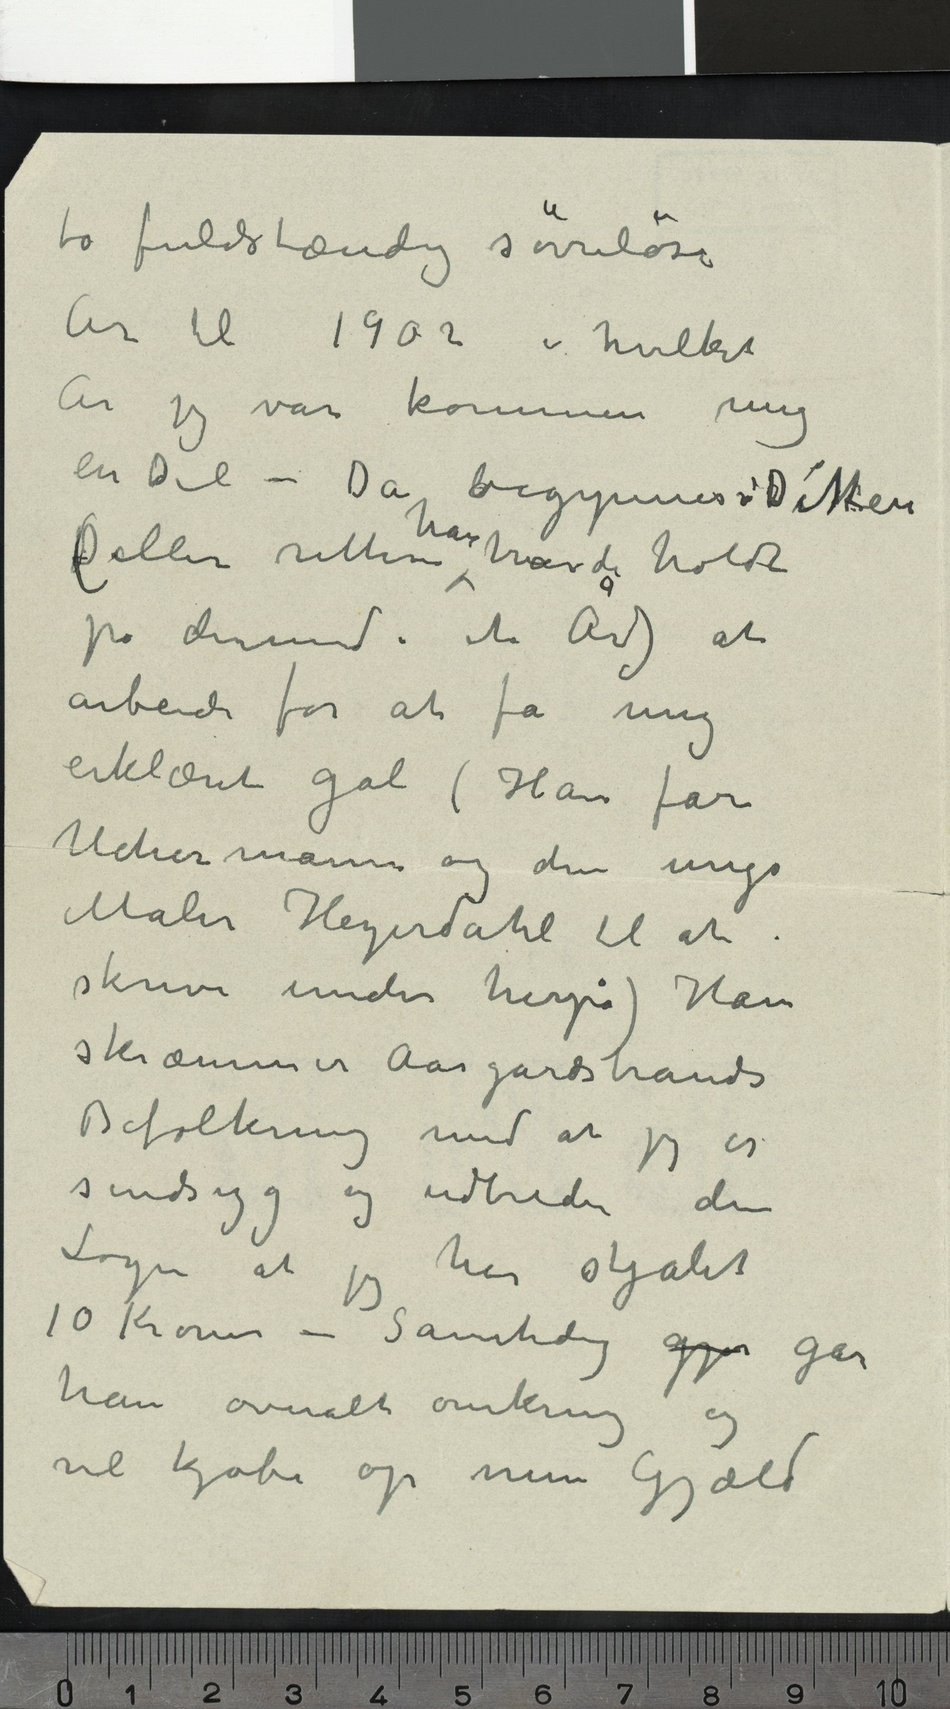 to fuldstændig sövnlöse
År til 1902 i hvilket
År jeg var kommen mig
en Del – Da begynner Ditten
(eller rettere han havde holdt
på dermed i et År) at
arbeide for at få mig
erklæret gal (Han får
Uchermann og den unge
Maler Heyerdahl til at
skrive under herpå) Han
skræmmer Aasgardstrands
Befolkning med at jeg er
sindsyg og udbreder den
Løgn at jeg har stjålet
10 Kroner – Samtidig gjør går
han overalt omkring og
vil kjøbe op min Gjæld
0 1 2 3 4 5 6 7 8 9 10